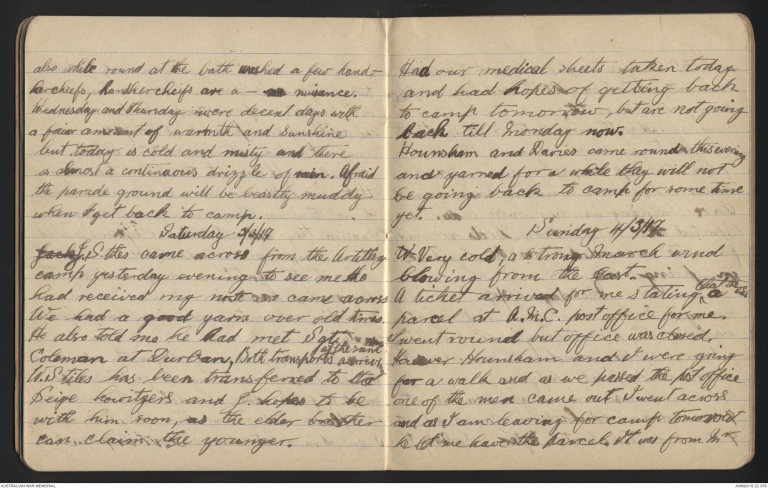 also while round at the bath washed a few hand-
kerchiefs, handkercheifs are a — nuisance.
Wednesday and Thursday were decent days with
a fair amount of warmth and sunshine
but today is cold and misty and there
is almost a continuous drizzle of rain. Afraid
the parade ground will be beastly muddy
when I get back to camp.
Saturday 3/3/17
J. Stiles came across from the Artillery
camp yesterday evening to see me he
had received my note so came across
We had a good yarn over old times.
He also told me he had met Sgt.
Coleman at Durban, Both transports
at the same
W. Stiles has been transferred to the
Seige howitzers and J. hopes to be
with him soon, as the elder brother
can claim the younger.
Had our medical sheets taken today
and had hopes of getting back
to camp tomorrow, but are not going
back till Monday now.
Hounsham and Davies came round this evening
and yarned for a while they will not
be going back to camp for some time
yet.
Sunday 4/3/17
Very cold, a strong March wind
blowing from the East.
A ticket arrived for me stating that there was a
parcel at A.M.C. post office for me.
I went round but office was closed.
However Hounsham and I were going
for a walk and as we passed the post office
one of the men came out I went across
and as I am leaving for camp tomorrow
he let me have the parcel. It was from Mr
AUSTRALIAN WAR MEMORIAL